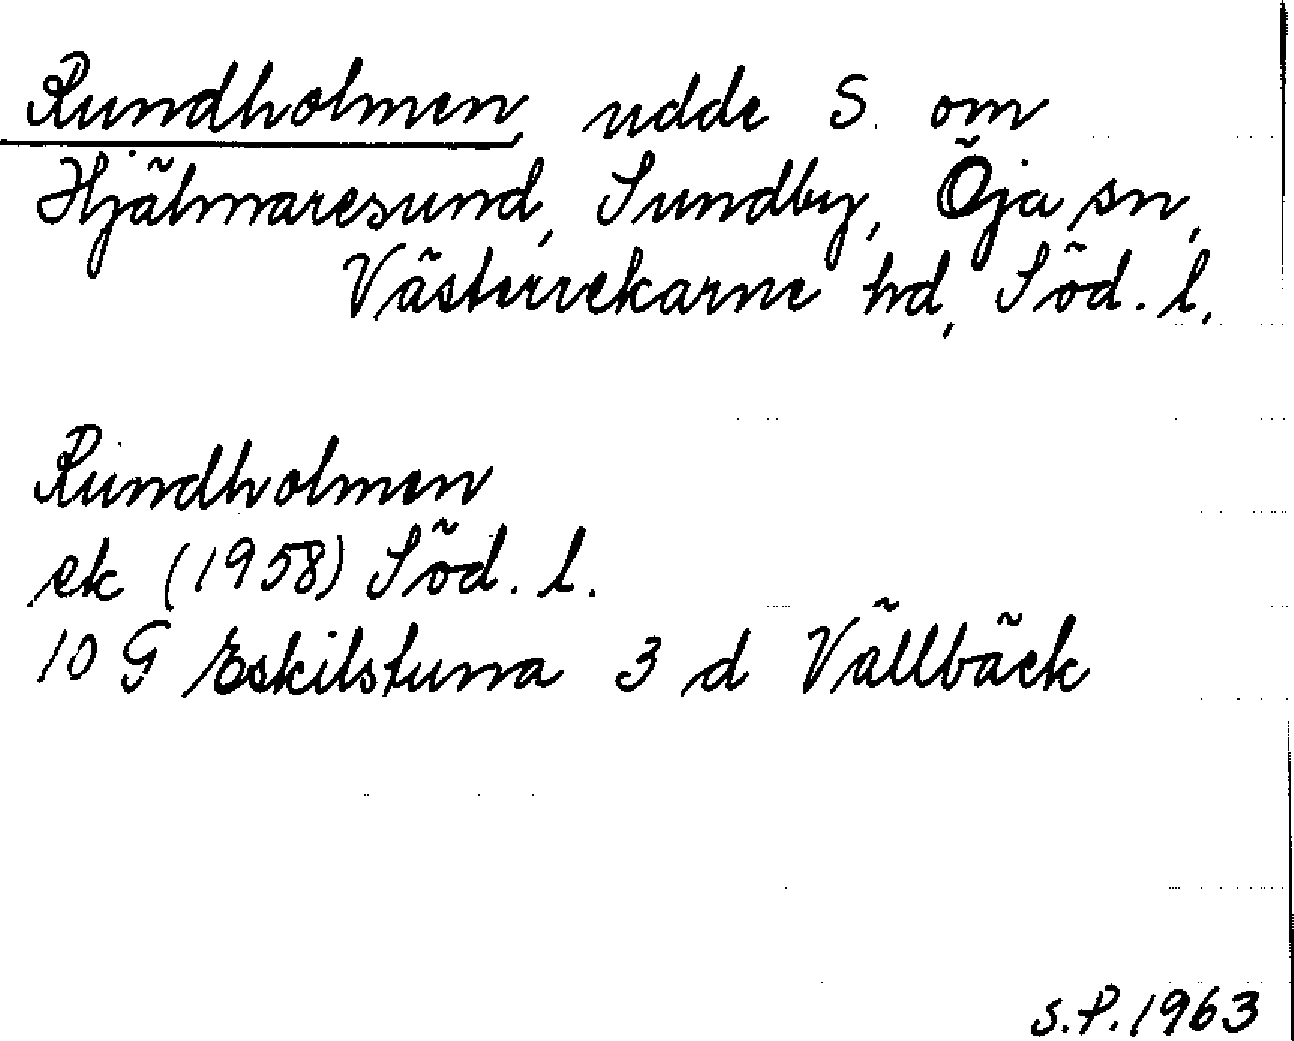 Rundholmen, udde S. om
Hjälmaresund, Sundby, Öja sn,
Västerrekarne hd, Söd. l.
Rundholmen
ek (1958) Söd. l.
10 G Eskilstuna 3 d Vällbäck
S.P. 1963